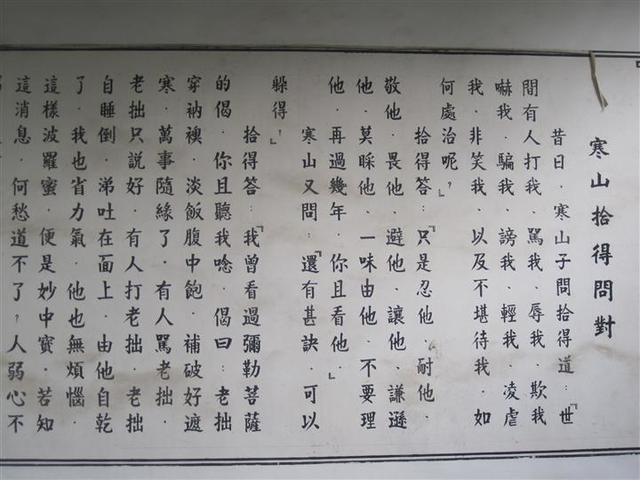 寒山拾得問對
昔日、寒山子問拾得道:「世
間有人打我、罵我、辱我、欺我
嚇我、騙我、謗我、輕我、凌虐
我、非笑我、以及不堪待我、如
何處治呢?」
拾得答:「只是忍他、耐他、
敬他、畏他、避他、讓他、謙遜
他、莫睬他、一味由他、不要理
他、再過幾年、你且看他。」
寒山又問:「還有甚訣、可以
躲得?」
拾得答:「我曾看過彌勒菩薩
的偈、你且聽我唸、偈曰:老拙
穿衲襖、淡飯腹中飽、補破好遮
寒、萬事隨緣了、有人罵老拙、
老拙只說好、有人打老拙、老拙
自睡倒、涕吐在面上、由他自乾
了、我也省力氣、他也無煩惱、
這樣波羅蜜、便是妙中寶、若知
這消息、何愁道不了?人弱心不